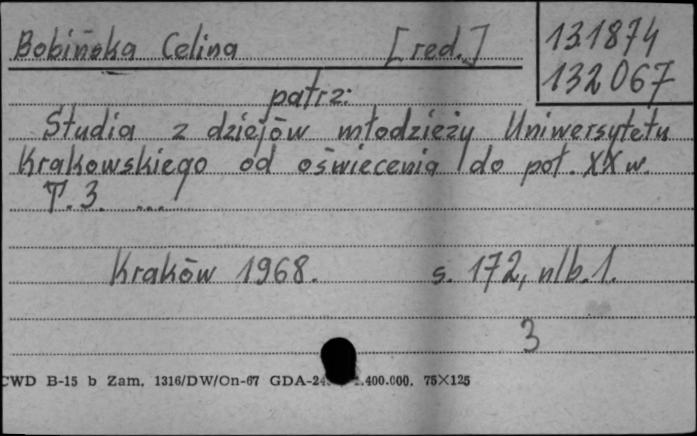 Bobińska Celina [red.]
131874
132067
patrz:
Studia z dziejów młodzieży Uniwersytetu
Krakowskiego od oświecenia do poł. XX w.
T. 3. ...
Kraków 1968. s. 172, nlb. 1.
3
CWD B-15 b Zam. 1316/DW/On-67 GDA-24 .400.000. 75×125